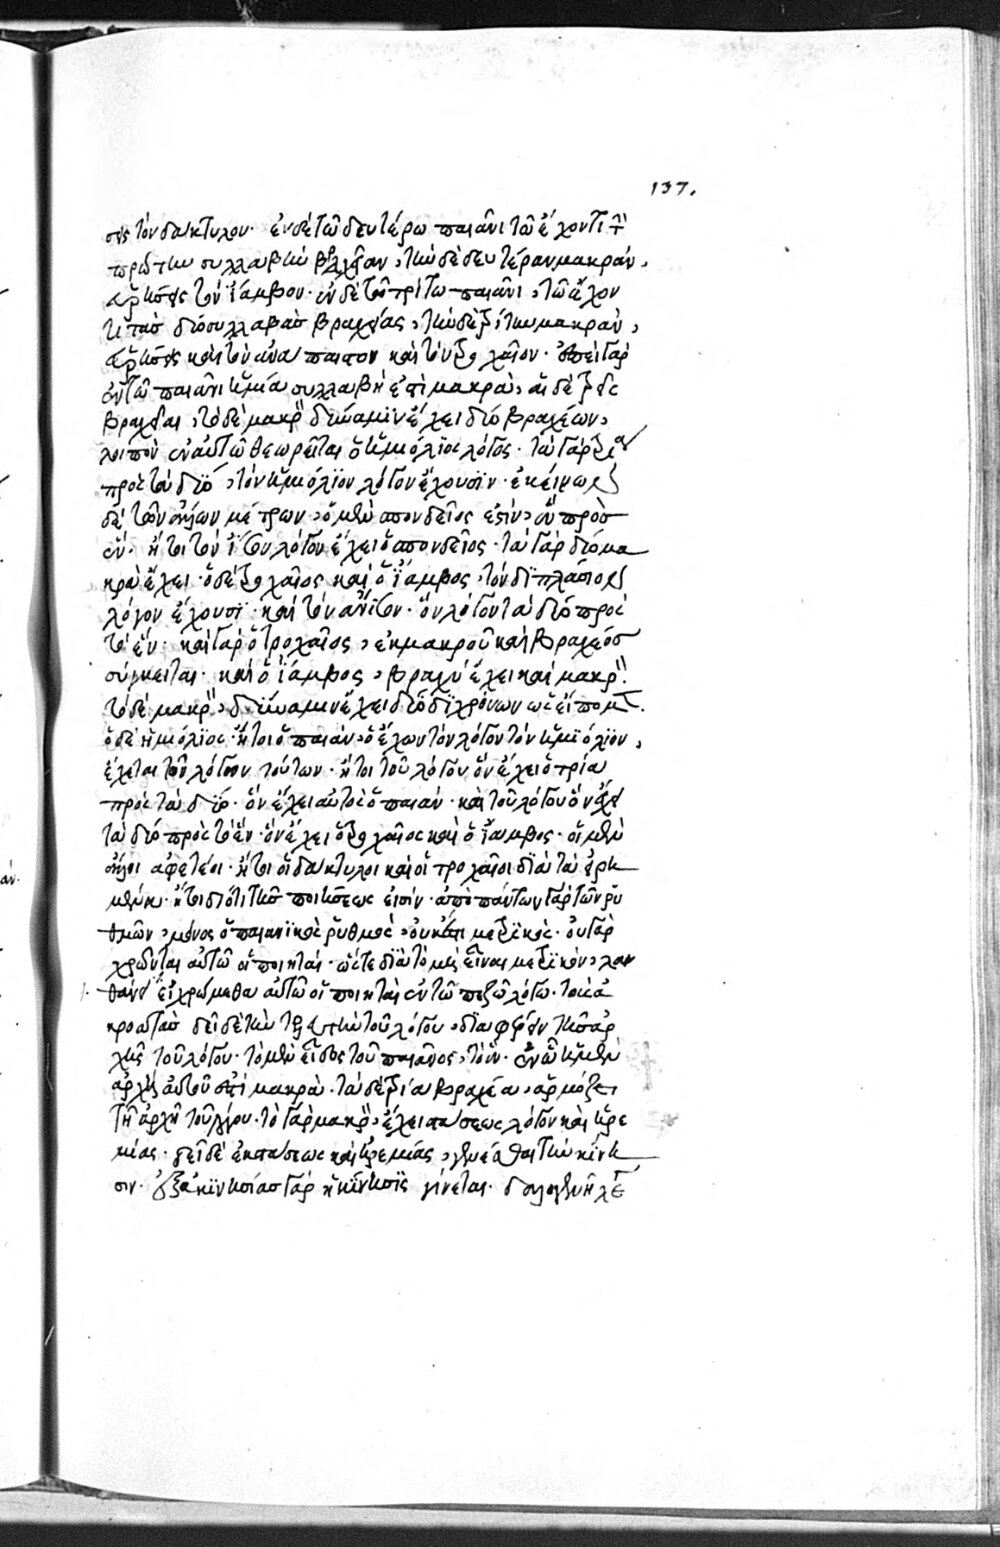 137.
σεις τὸν δάκτυλον· ἐν δὲ τῶ δευτέρω παιᾶνι τῶ ἔχοντι τὴν
πρώτην συλλαβὴν βραχεῖαν, τὴν δὲ δευτέραν μακρὰν,
εὑρήσεις τὸν ἴαμβον· ἐν δὲ τῶ τρίτω παιᾶνι, τῶ ἔχον
τι τὰς δύο συλλαβὰς βραχείας, τὴν δὲ τρίτην μακρὰν,
εὑρήσεις καὶ τὸν ἀνάπαιστον καὶ τὸν τροχαῖον· ἐπεὶ γὰρ
ἐν τῶ παιᾶνι ἡ μία συλλαβὴ ἐστὶ μακρὰ, αἱ δὲ τρεῖς
βραχεῖαι, τὸ δὲ μακρὸν δύναμιν ἔχει δύο βραχέων,
λοιπὸν ἐν αὐτῶ θεωρεῖται ὁ ἡμιόλιος λόγος· τὰ γὰρ τρία
πρὸς τὰ δύο, τὸν ἡμιόλιον λόγον ἔχουσιν· ἐκείνων
δὲ τῶν μέτρων, ὁ μὲν σπονδεῖος ἐστὶν, ἓν πρὸς
ἕν· ἤτοι τὸν ἴσον λόγον ἔχει ὁ σπονδεῖος· τὰ γὰρ δύο μα
κρὰ ἔχει· ὁ δὲ τροχαῖος καὶ ὁ ἴαμβος, τὸν διπλάσιον
λόγον ἔχουσι· καὶ τὸν ἄνισον· ὃν λόγον τὰ δύο πρὸς
τὸ ἕν· καὶ γὰρ ὁ τροχαῖος, ἐκ μακροῦ καὶ βραχέος
σύγκειται· καὶ ὁ ἴαμβος, βραχὺ ἔχει καὶ μακρόν·
τὸ δὲ μακρὸν, δύναμιν ἔχει δύο διχρόνων ὡς εἴπομεν.
ὁ δὲ ἡμιόλιος ἤτοι ὁ παιὰν, ὁ ἔχων τὸν λόγον τὸν ἡμιόλιον,
ἔχεται τῶν λόγων τούτων· ἤτοι τοῦ λόγου ὃν ἔχει ὁ τρία
πρὸς τὰ δύο· ὃν ἔχει αὐτὸς ὁ παιάν· καὶ τοῦ λόγου ὃν ἔχει
τὰ δύο πρὸς τὸ ἕν· ὃν ἔχει ὁ τροχαῖος καὶ ὁ ἴαμβος· οἱ μὲν
ἀφετέοι· ἤτοι οἱ δάκτυλοι καὶ οἱ τροχαῖοι διὰ τὰ εἰρη
μένα· ἤτοι διότι τῆς ποιήσεως εἰσίν· ἀπὸ πάντων γὰρ τῶν ῥυ
θμῶν, μόνος ὁ παιανικὸς ῥυθμὸς, οὐκ ἔστι μετρικός· οὐ γὰρ
χρῶνται αὐτῶ οἱ ποιηταί· ὥστε διὰ τὸ μὴ εἶναι μετρικὸν, λαν
θάνει εἰ χρώμεθα αὐτῶ οἱ ποιηταὶ ἐν τῶ πεζῶ λόγω· τοὺς ἀ
κροατάς δεῖ δὲ τὴν τελευτὴν τοῦ λόγου, διαφέρειν τῆς ἀρ
χῆς τοῦ λόγου· τὸ μὲν εἶδος τοῦ παιᾶνος, τὸ ἕν· ἐν ᾧ ἡ μὲν
ἀρχὴ αὐτοῦ ἐστὶ μακρὰ· τὰ δὲ τρία βραχέα, ἁρμόζει
τῆ ἀρχῆ τοῦ λόγου· τὸ γὰρ μακρὸν, ἔχει στάσεως λόγον καὶ ἠρε
μίας· δεῖ δὲ ἐκ στάσεως καὶ ἠρεμίας, γενέσθαι τὴν κίνη
σιν· ἐξ ἀκινησίας γὰρ ἡ κίνησις γίνεται·